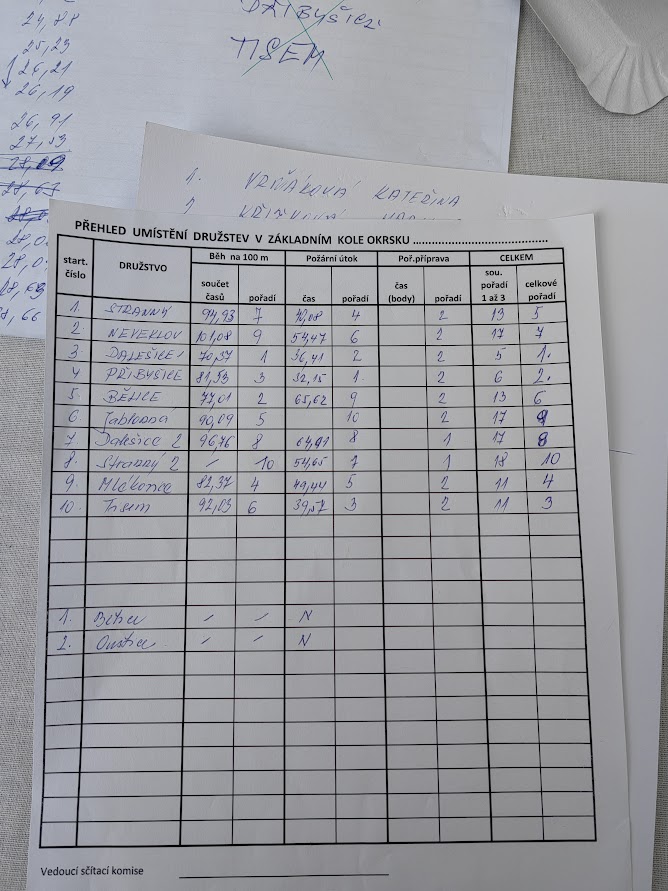 24,88
25,23
26,21
26,19
26,91
27,53
28,09
28,67
PŘIBYŠICE
TISEM
1. KATEŘINA
PŘEHLED UMÍSTĚNÍ DRUŽSTEV V ZÁKLADNÍM KOLE OKRSKU
start. číslo DRUŽSTVO Běh na 100 m Požární útok Poř.příprava CELKEM
součet časů pořadí čas pořadí čas (body) pořadí sou. pořadí 1 až 3 celkové pořadí
1. STRANNÝ 94,93 7 4 2 13 5
2 NEVEKLOV 101,08 9 54,47 6 2 17 7
3 DALEŠICE 1 70,37 1 36,41 2 2 5 1.
4 PŘIBYŠICE 81,53 3 32,15 1. 2 6 2.
5. BĚLICE 77,01 2 65,62 9 2 13 6
6 Jablonná 90,69 5 10 2 17 9
7 Dalešice 2 96,76 8 64,91 8 1 17 8
8. Stranný 2 – 10 54,65 7 1 18 10
9. Mlékovice 82,37 4 49,44 5 2 11 4
10. Tisem 92,03 6 39,57 3 2 11 3
1. – – N
2. – – N
Vedoucí sčítací komise